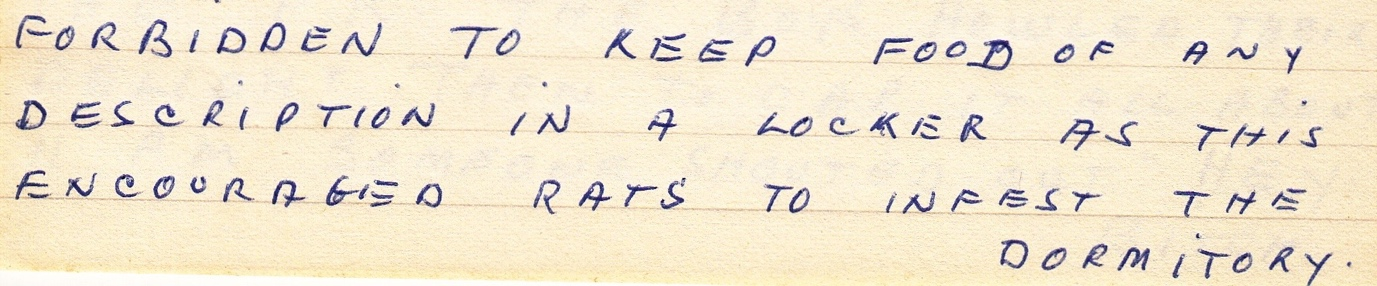 FORBIDDEN TO KEEP FOOD OF ANY
DESCRIPTION IN A LOCKER AS THIS
ENCOURAGED RATS TO INFEST THE
DORMITORY.